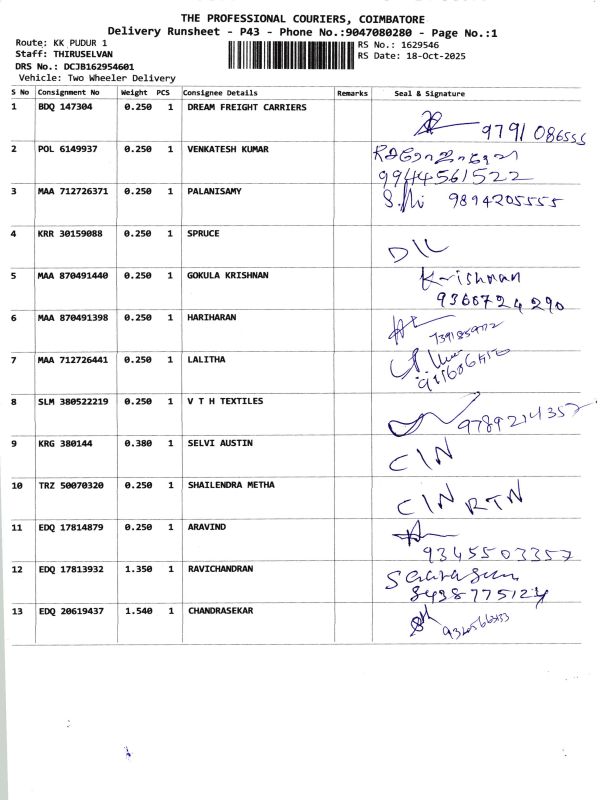 THE PROFESSIONAL COURIERS, COIMBATORE
Delivery Runsheet - P43 - Phone No.:9047080280 - Page No.:1
Route: KK PUDUR 1
Staff: THIRUSELVAN
DRS No.: DCJB162954601
Vehicle: Two Wheeler Delivery
RS No.: 1629546
RS Date: 18-Oct-2025
S No Consignment No Weight PCS Consignee Details Remarks Seal & Signature
1 BDQ 147304 0.250 1 DREAM FREIGHT CARRIERS
9791 086555
2 POL 6149937 0.250 1 VENKATESH KUMAR
9944561522
3 MAA 712726371 0.250 1 PALANISAMY 9894205555
4 KRR 30159088 0.250 1 SPRUCE
D/L
5 MAA 870491440 0.250 1 GOKULA KRISHNAN Krishnan
9366724290
6 MAA 870491398 0.250 1 HARIHARAN
7 MAA 712726441 0.250 1 LALITHA
8 SLM 380522219 0.250 1 V T H TEXTILES
9789214357
9 KRG 380144 0.380 1 SELVI AUSTIN
C/N
10 TRZ 50070320 0.250 1 SHAILENDRA METHA
C/N RTN
11 EDQ 17814879 0.250 1 ARAVIND
9345503357
12 EDQ 17813932 1.350 1 RAVICHANDRAN
8438775124
13 EDQ 20619437 1.540 1 CHANDRASEKAR